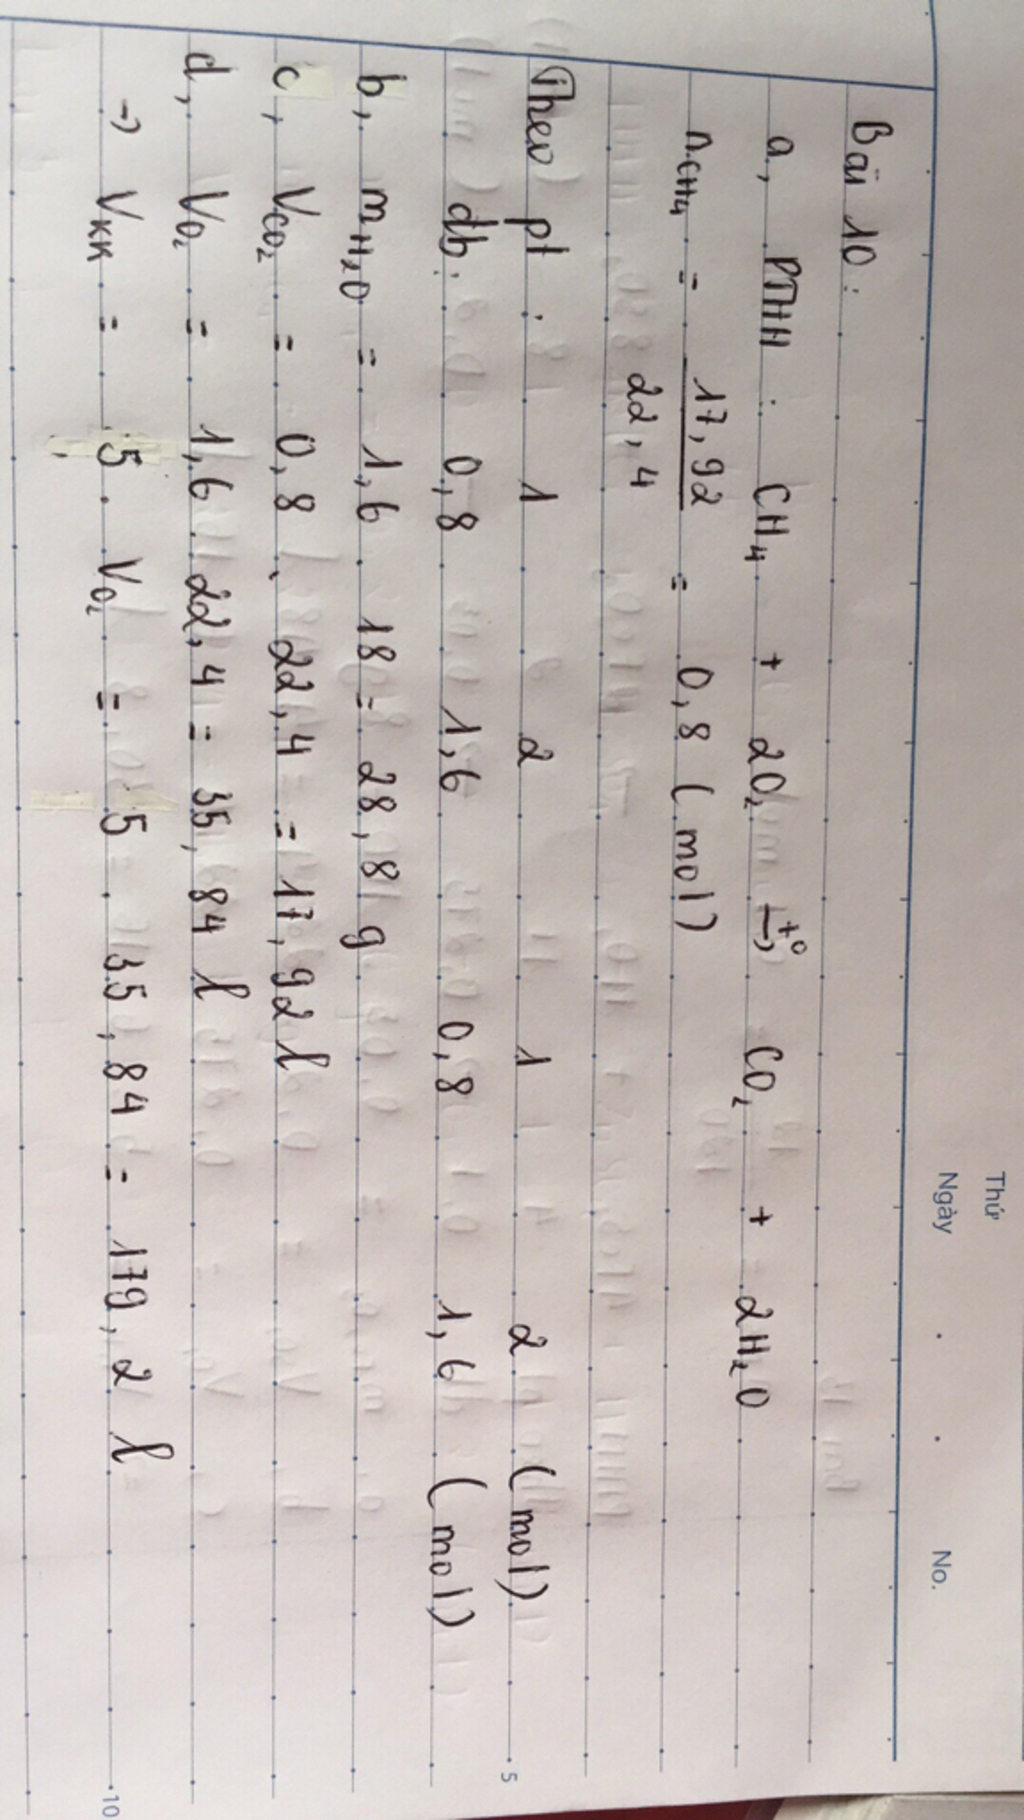 Thứ
Ngày . . No.
Bài 10 :
a, PTHH : CH₄ + 2O₂ —t°→ CO₂ + 2H₂O
nCH₄ = 17,92 / 22,4 = 0,8 (mol)
Theo pt : 1 2 1 2 (mol)
db: 0,8 1,6 0,8 1,6 (mol)
b, mH₂O = 1,6 . 18 = 28,8 g
c, VCO₂ = 0,8 . 22,4 = 17,92 l
d, VO₂ = 1,6 . 22,4 = 35,84 l
→ VKK = 5 . VO₂ = 5 . 35,84 = 179,2 l
5
10